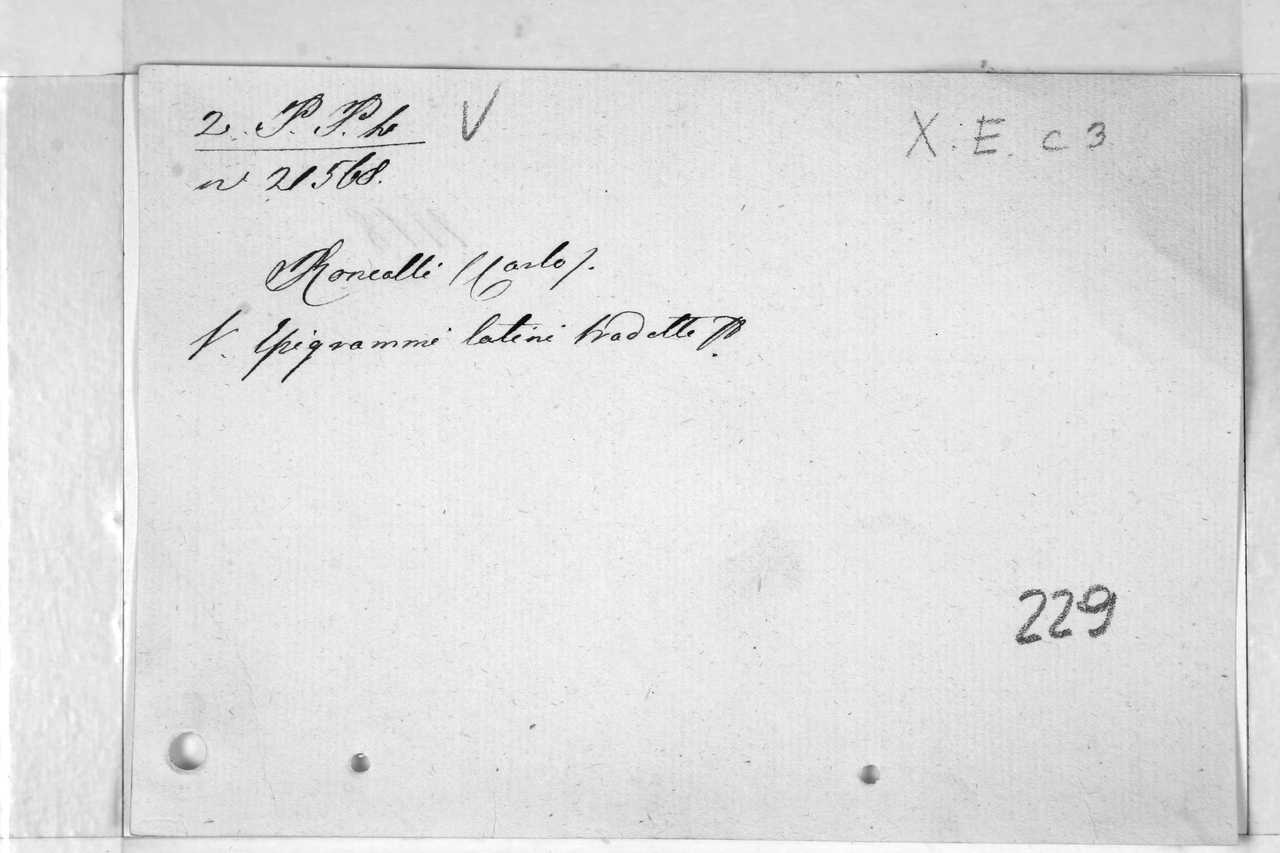 2. P. P. h V X. E. c 3
n 21568.
Roncalli (Carlo).
V. Epigrammi latini tradotti
229